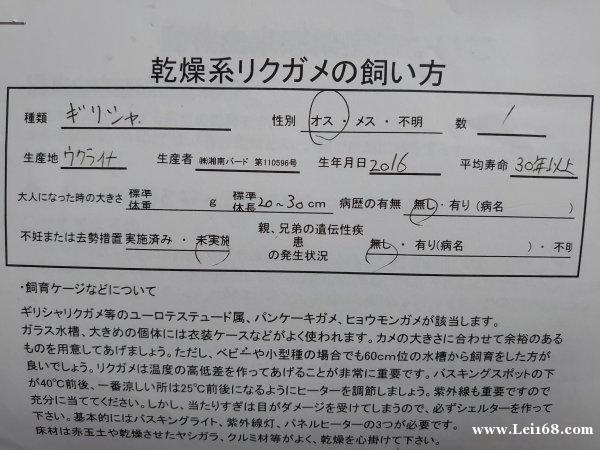 乾燥系リクガメの飼い方
種類 ギリシャ 性別 オス ・ メス ・ 不明 数 1
生産地 ウクライナ 生産者 ㈱湘南バード 第110596号 生年月日 2016 平均寿命 30年以上
大人になった時の大きさ 標準体重 g 標準体長 20～30cm 病歴の有無 無し ・ 有り (病名 )
不妊または去勢措置 実施済み ・ 未実施 親、兄弟の遺伝性疾患の発生状況 無し ・ 有り(病名 ) ・ 不明
・飼育ケージなどについて
ギリシャリクガメ等のユーロテステュード属、パンケーキガメ、ヒョウモンガメが該当します。
ガラス水槽、大きめの個体には衣装ケースなどがよく使われます。カメの大きさに合わせて余裕のある
ものを用意してあげましょう。ただし、ベビーや小型種の場合でも60cm位の水槽から飼育をした方が
良いでしょう。リクガメは温度の高低差を作ってあげることが非常に重要です。バスキングスポットの下
が40℃前後、一番涼しい所は25℃前後になるようにヒーターを調節しましょう。紫外線も重要ですので
充分に当ててください。しかし、当たりすぎは目がダメージを受けてしまうので、必ずシェルターを作って
下さい。基本的にはバスキングライト、紫外線灯、パネルヒーターの3つが必要です。
床材は赤玉土や乾燥させたヤシガラ、クルミ材等がよく、乾燥を心掛けて下さい。
www.Lei168.com